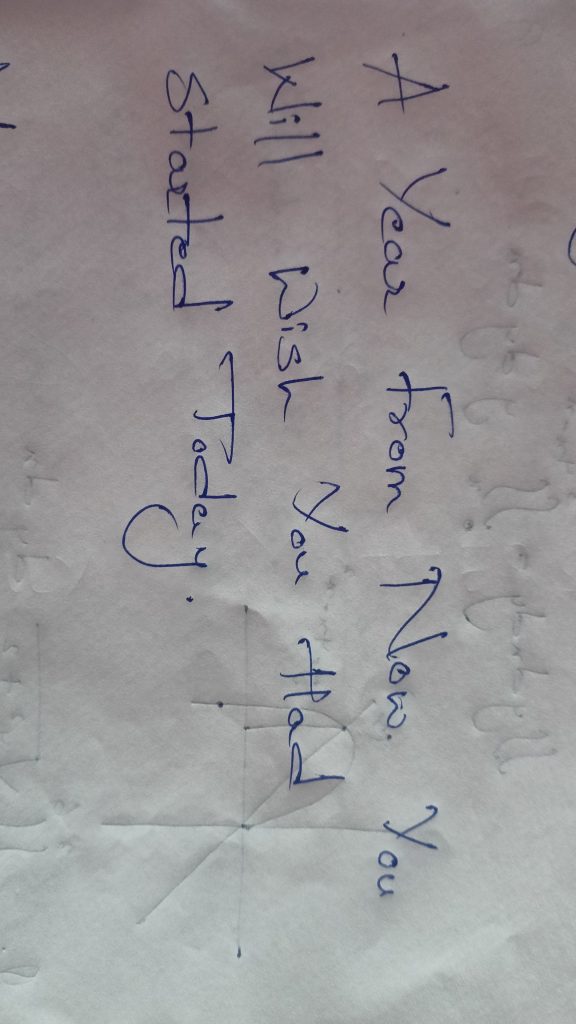 A Year From Now. You
Will Wish You Had
Started Today.